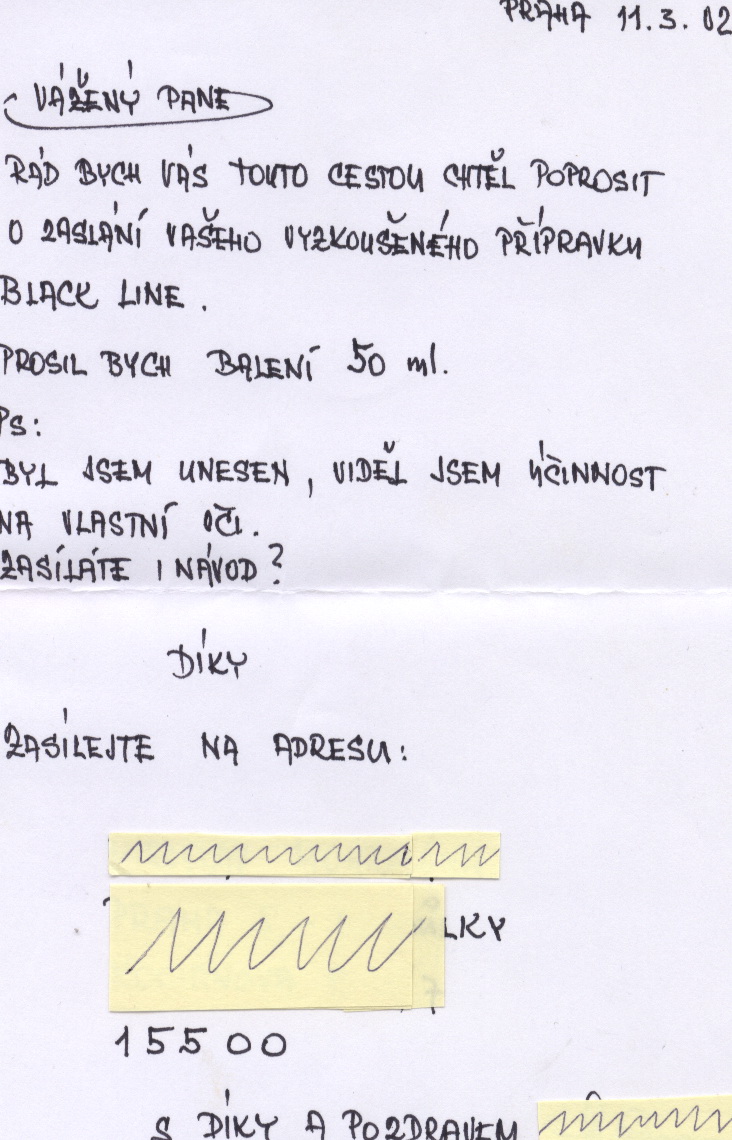 PRAHA 11.3.02
VÁŽENÝ PANE
RÁD BYCH VÁS TOUTO CESTOU CHTĚL POPROSIT
O ZASLÁNÍ VAŠEHO VYZKOUŠENÉHO PŘÍPRAVKU
BLACK LINE.
PROSIL BYCH BALENÍ 50 ml.
PS:
BYL JSEM UNESEN, VIDĚL JSEM ÚČINNOST
NA VLASTNÍ OČI.
ZASÍLÁTE I NÁVOD?
DÍKY
ZASÍLEJTE NA ADRESU:
LKY
15500
S DÍKY A POZDRAVEM